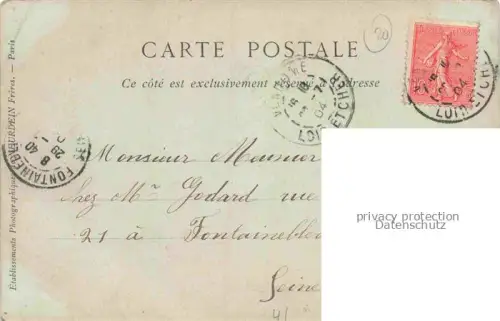 20
CARTE POSTALE
Ce côté est exclusivement réservé à l'adresse
VENDOME
04
LOIR-ET-CHER
04
LOIR-ET-CHER
FONTAINEBLEAU
8 40
29
Etablissements Photographiques NEURDEIN Frères. — Paris
Monsieur
chez Mr Godard rue
21 à Fontaineblea
Seine
41
privacy protection
Datenschutz